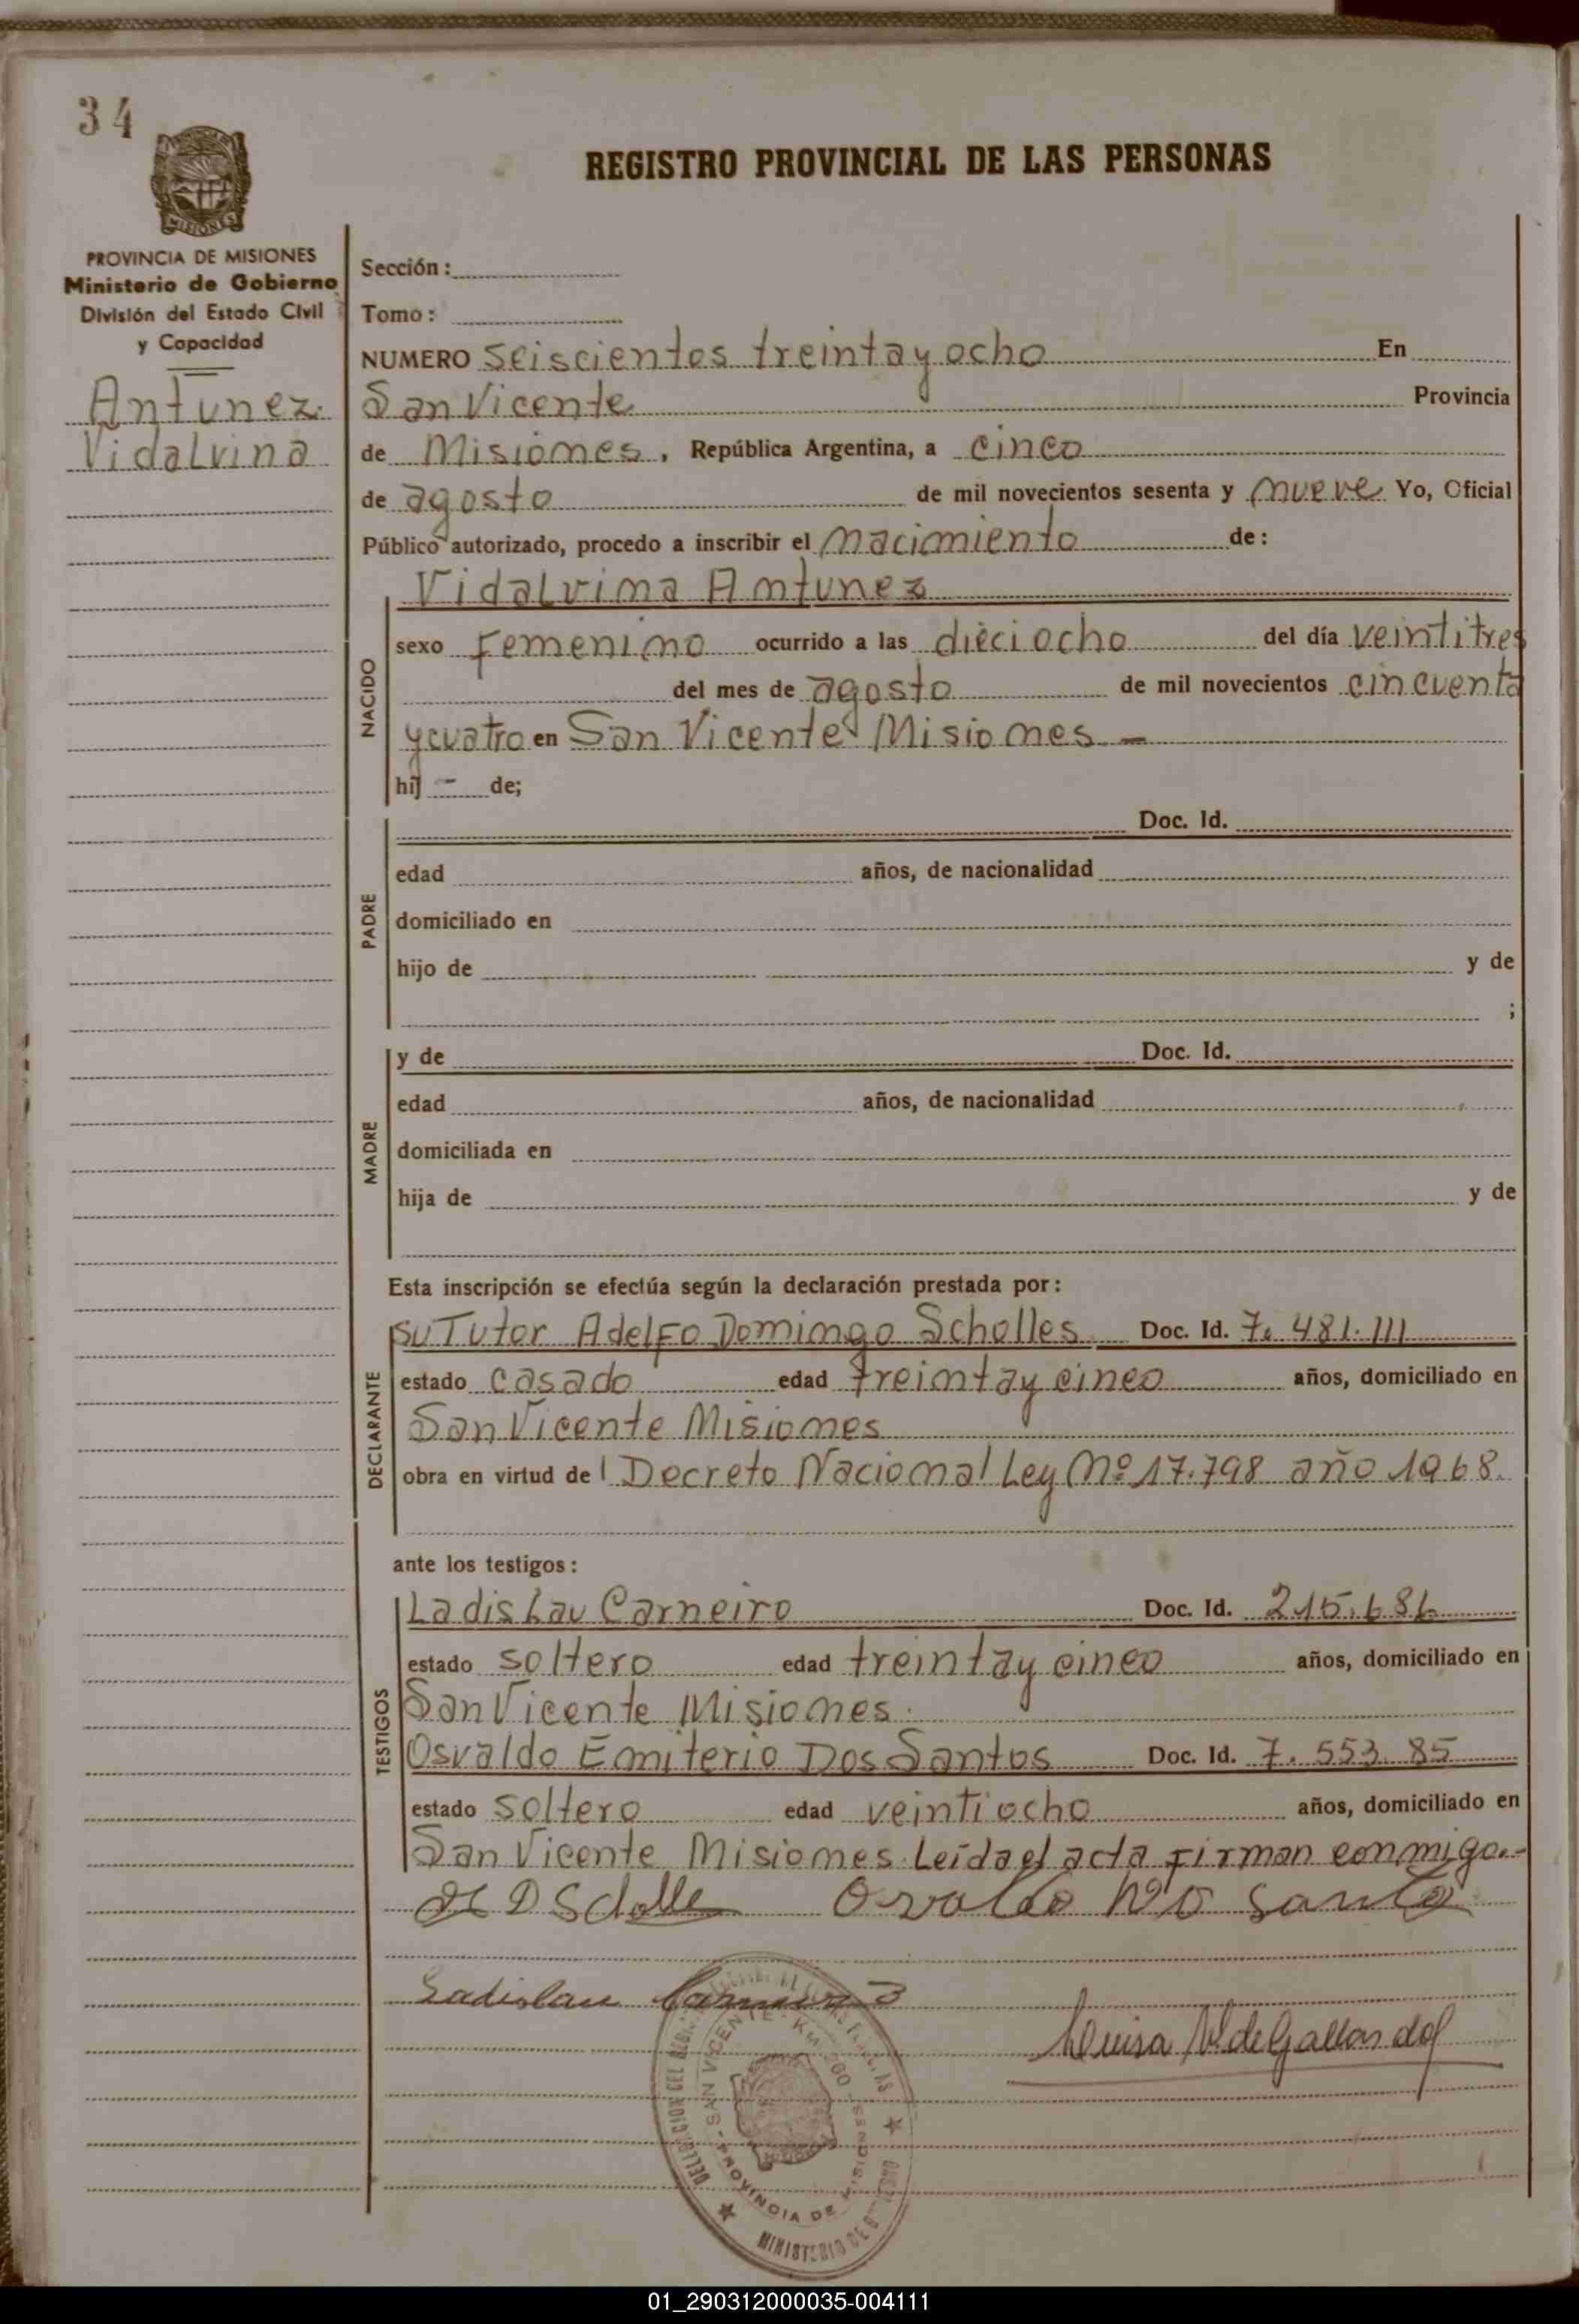 34
REGISTRO PROVINCIAL DE LAS PERSONAS
MISIONES
PROVINCIA DE MISIONES
Ministerio de Gobierno
División del Estado Civil
y Capacidad
Antunez
Vidalvina
Sección:
Tomo:
NUMERO Seiscientos treintayocho En
San Vicente Provincia
de Misiones, República Argentina, a cinco
de agosto de mil novecientos sesenta y nueve Yo, Oficial
Público autorizado, procedo a inscribir el nacimiento de:
Vidalvina Antunez
NACIDO
sexo Femenino ocurrido a las dieciocho del día veintitres
del mes de agosto de mil novecientos cincuenta
ycuatro en San Vicente Misiones -
hij - de;
PADRE
Doc. Id.
edad años, de nacionalidad
domiciliado en
hijo de y de
;
MADRE
y de Doc. Id.
edad años, de nacionalidad
domiciliada en
hija de y de
Esta inscripción se efectúa según la declaración prestada por:
DECLARANTE
su Tutor Adelfo Domingo Scholles Doc. Id. 7. 481.111
estado casado edad treintaycinco años, domiciliado en
San Vicente Misiones
obra en virtud de l Decreto Nacional Ley Nº 17.798 año 1968.
ante los testigos:
TESTIGOS
Ladislau Carneiro Doc. Id. 215.686
estado soltero edad treintaycinco años, domiciliado en
San Vicente Misiones.
Osvaldo Emiterio Dos Santos Doc. Id. 7. 553. 85
estado soltero edad veintiocho años, domiciliado en
San Vicente Misiones. Leída el acta firman conmigo.-
Ladislau Carneiro
Luisa de Gallardo
SAN VICENTE - KM 260
PROVINCIA DE MISIONES
MINISTERIO DE GOBIERNO
01_290312000035-004111